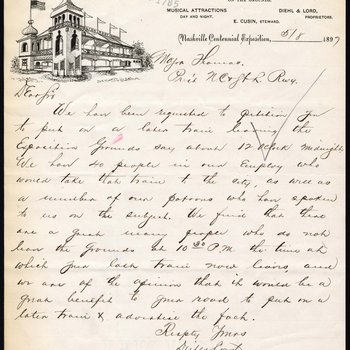 MUSICAL ATTRACTIONS
DAY AND NIGHT.
DIEHL & LORD,
PROPRIETORS.
E. CUSIN, STEWARD.
Nashville Centennial Exposition, 5/8 1897
Major Thomas.
Pres N C & St L Rwy.
Dear Sir
We have been requested to petition you
to put on a later train leaving the
Exposition Grounds say about 12 o'clock midnight
We have 40 people in our employ who
would take that train to the city, as well as
a number of our patrons who have spoken
to us on the subject. We find that there
are a great many people who do not
leave the grounds at 10 30 P.M. the time at
which your last train now leaves, and
we are of the opinion that it would be a
great benefit to your road to put on a
later train & advertise the fact.
Respty Yours